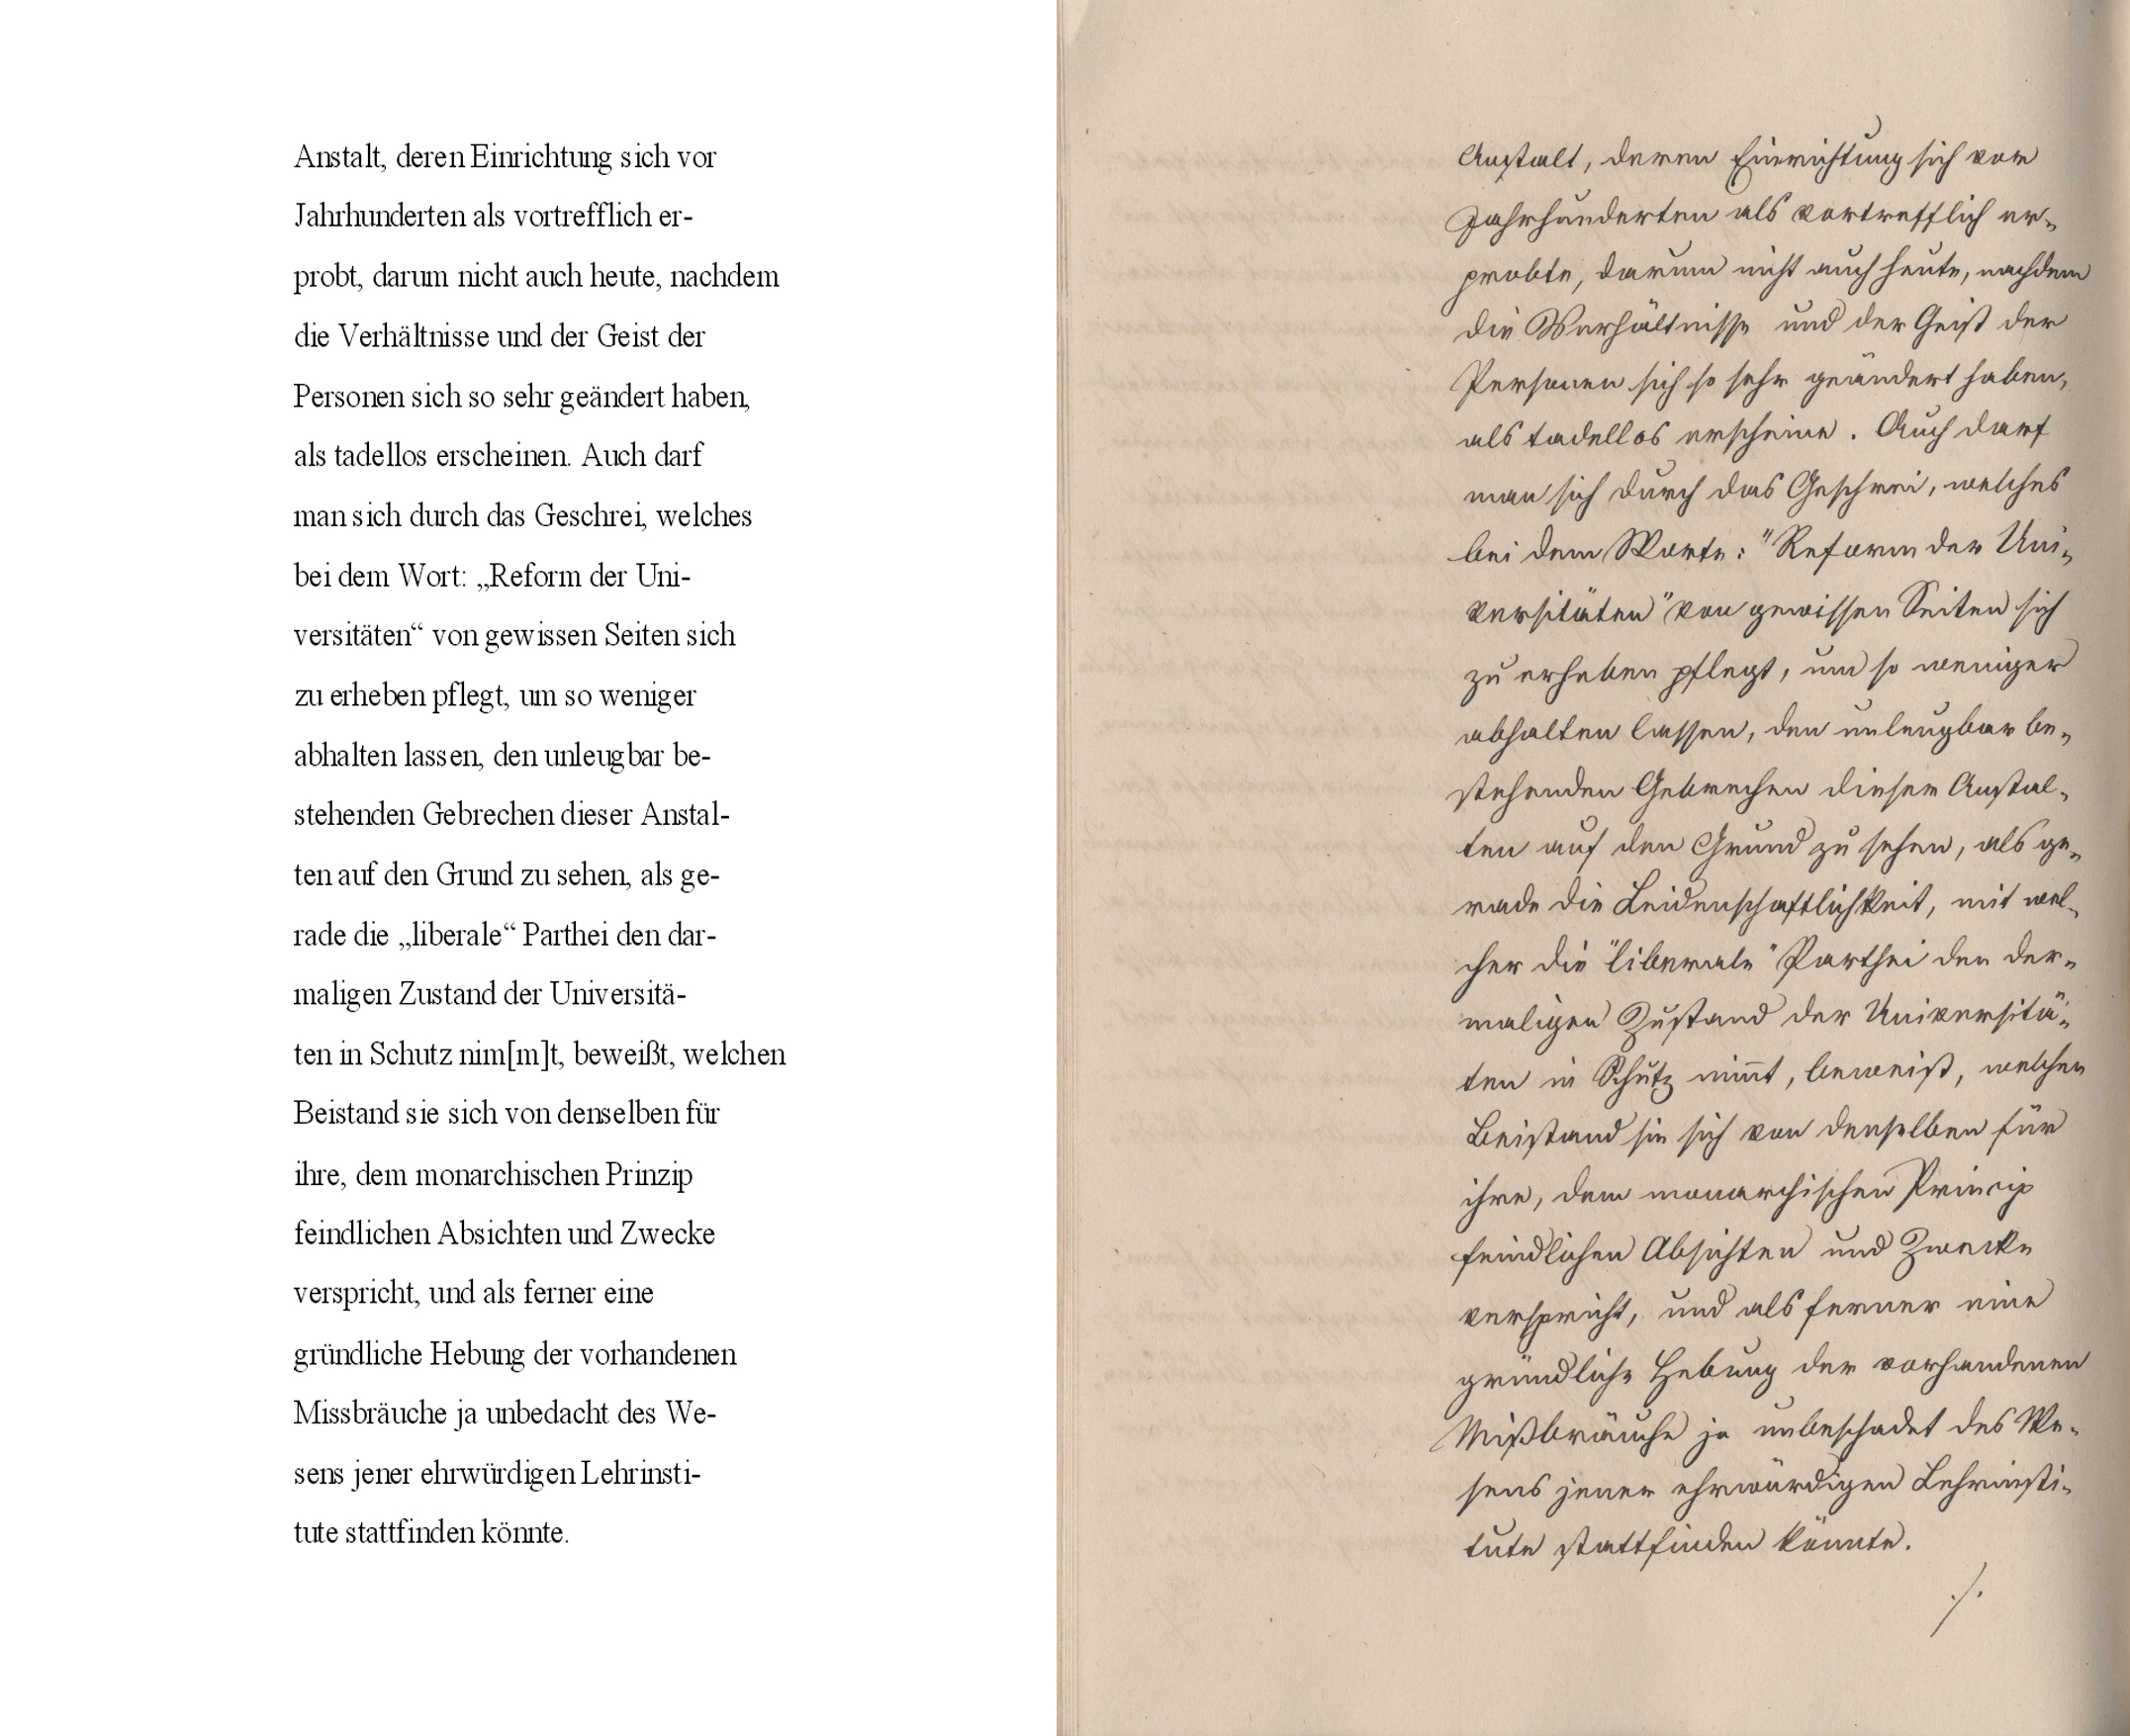 Anstalt, deren Einrichtung sich vor
Jahrhunderten als vortrefflich er-
probt, darum nicht auch heute, nachdem
die Verhältnisse und der Geist der
Personen sich so sehr geändert haben,
als tadellos erscheinen. Auch darf
man sich durch das Geschrei, welches
bei dem Wort: „Reform der Uni-
versitäten“ von gewissen Seiten sich
zu erheben pflegt, um so weniger
abhalten lassen, den unleugbar be-
stehenden Gebrechen dieser Anstal-
ten auf den Grund zu sehen, als ge-
rade die „liberale“ Parthei den dar-
maligen Zustand der Universitä-
ten in Schutz nim[m]t, beweißt, welchen
Beistand sie sich von denselben für
ihre, dem monarchischen Prinzip
feindlichen Absichten und Zwecke
verspricht, und als ferner eine
gründliche Hebung der vorhandenen
Missbräuche ja unbedacht des We-
sens jener ehrwürdigen Lehrinsti-
tute stattfinden könnte.
Anstalt, deren Einrichtung sich vor
Jahrhunderten als vortrefflich er-
probte, darum nicht auch heute, nachdem
die Verhältnisse und der Geist der
Personen sich so sehr geändert haben,
als tadellos erscheine. Auch darf
man sich durch das Geschrei, welches
bei dem Worte: "Reform der Uni-
versitäten" von gewissen Seiten sich
zu erheben pflegt, um so weniger
abhalten lassen, den unleugbar be-
stehenden Gebrechen dieser Anstal-
ten auf den Grund zu sehen, als ge-
rade die Leidenschaftlichkeit, mit wel-
cher die "liberale" Parthei den der-
maligen Zustand der Universitä-
ten in Schutz nim̅t, beweist, welchen
Beistand sie sich von denselben für
ihre, dem monarchischen Princip
feindlichen Absichten und Zwecke
verspricht, und als ferner eine
gründliche Hebung der vorhandenen
Mißbräuche ja unbeschadet des We-
sens jener ehrwürdigen Lehrinsti-
tute stattfinden könnte.
./.